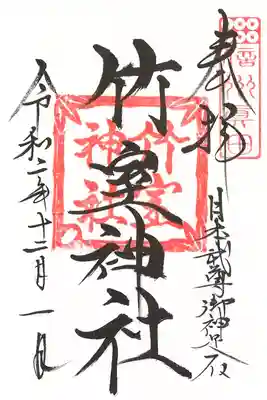 奉拝
日本武尊御神
竹室神社
竹室
神社
令和二年十二月一日